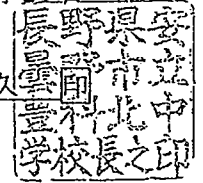 長野県安
曇野市立
久 印
豊科北中
学校長之印